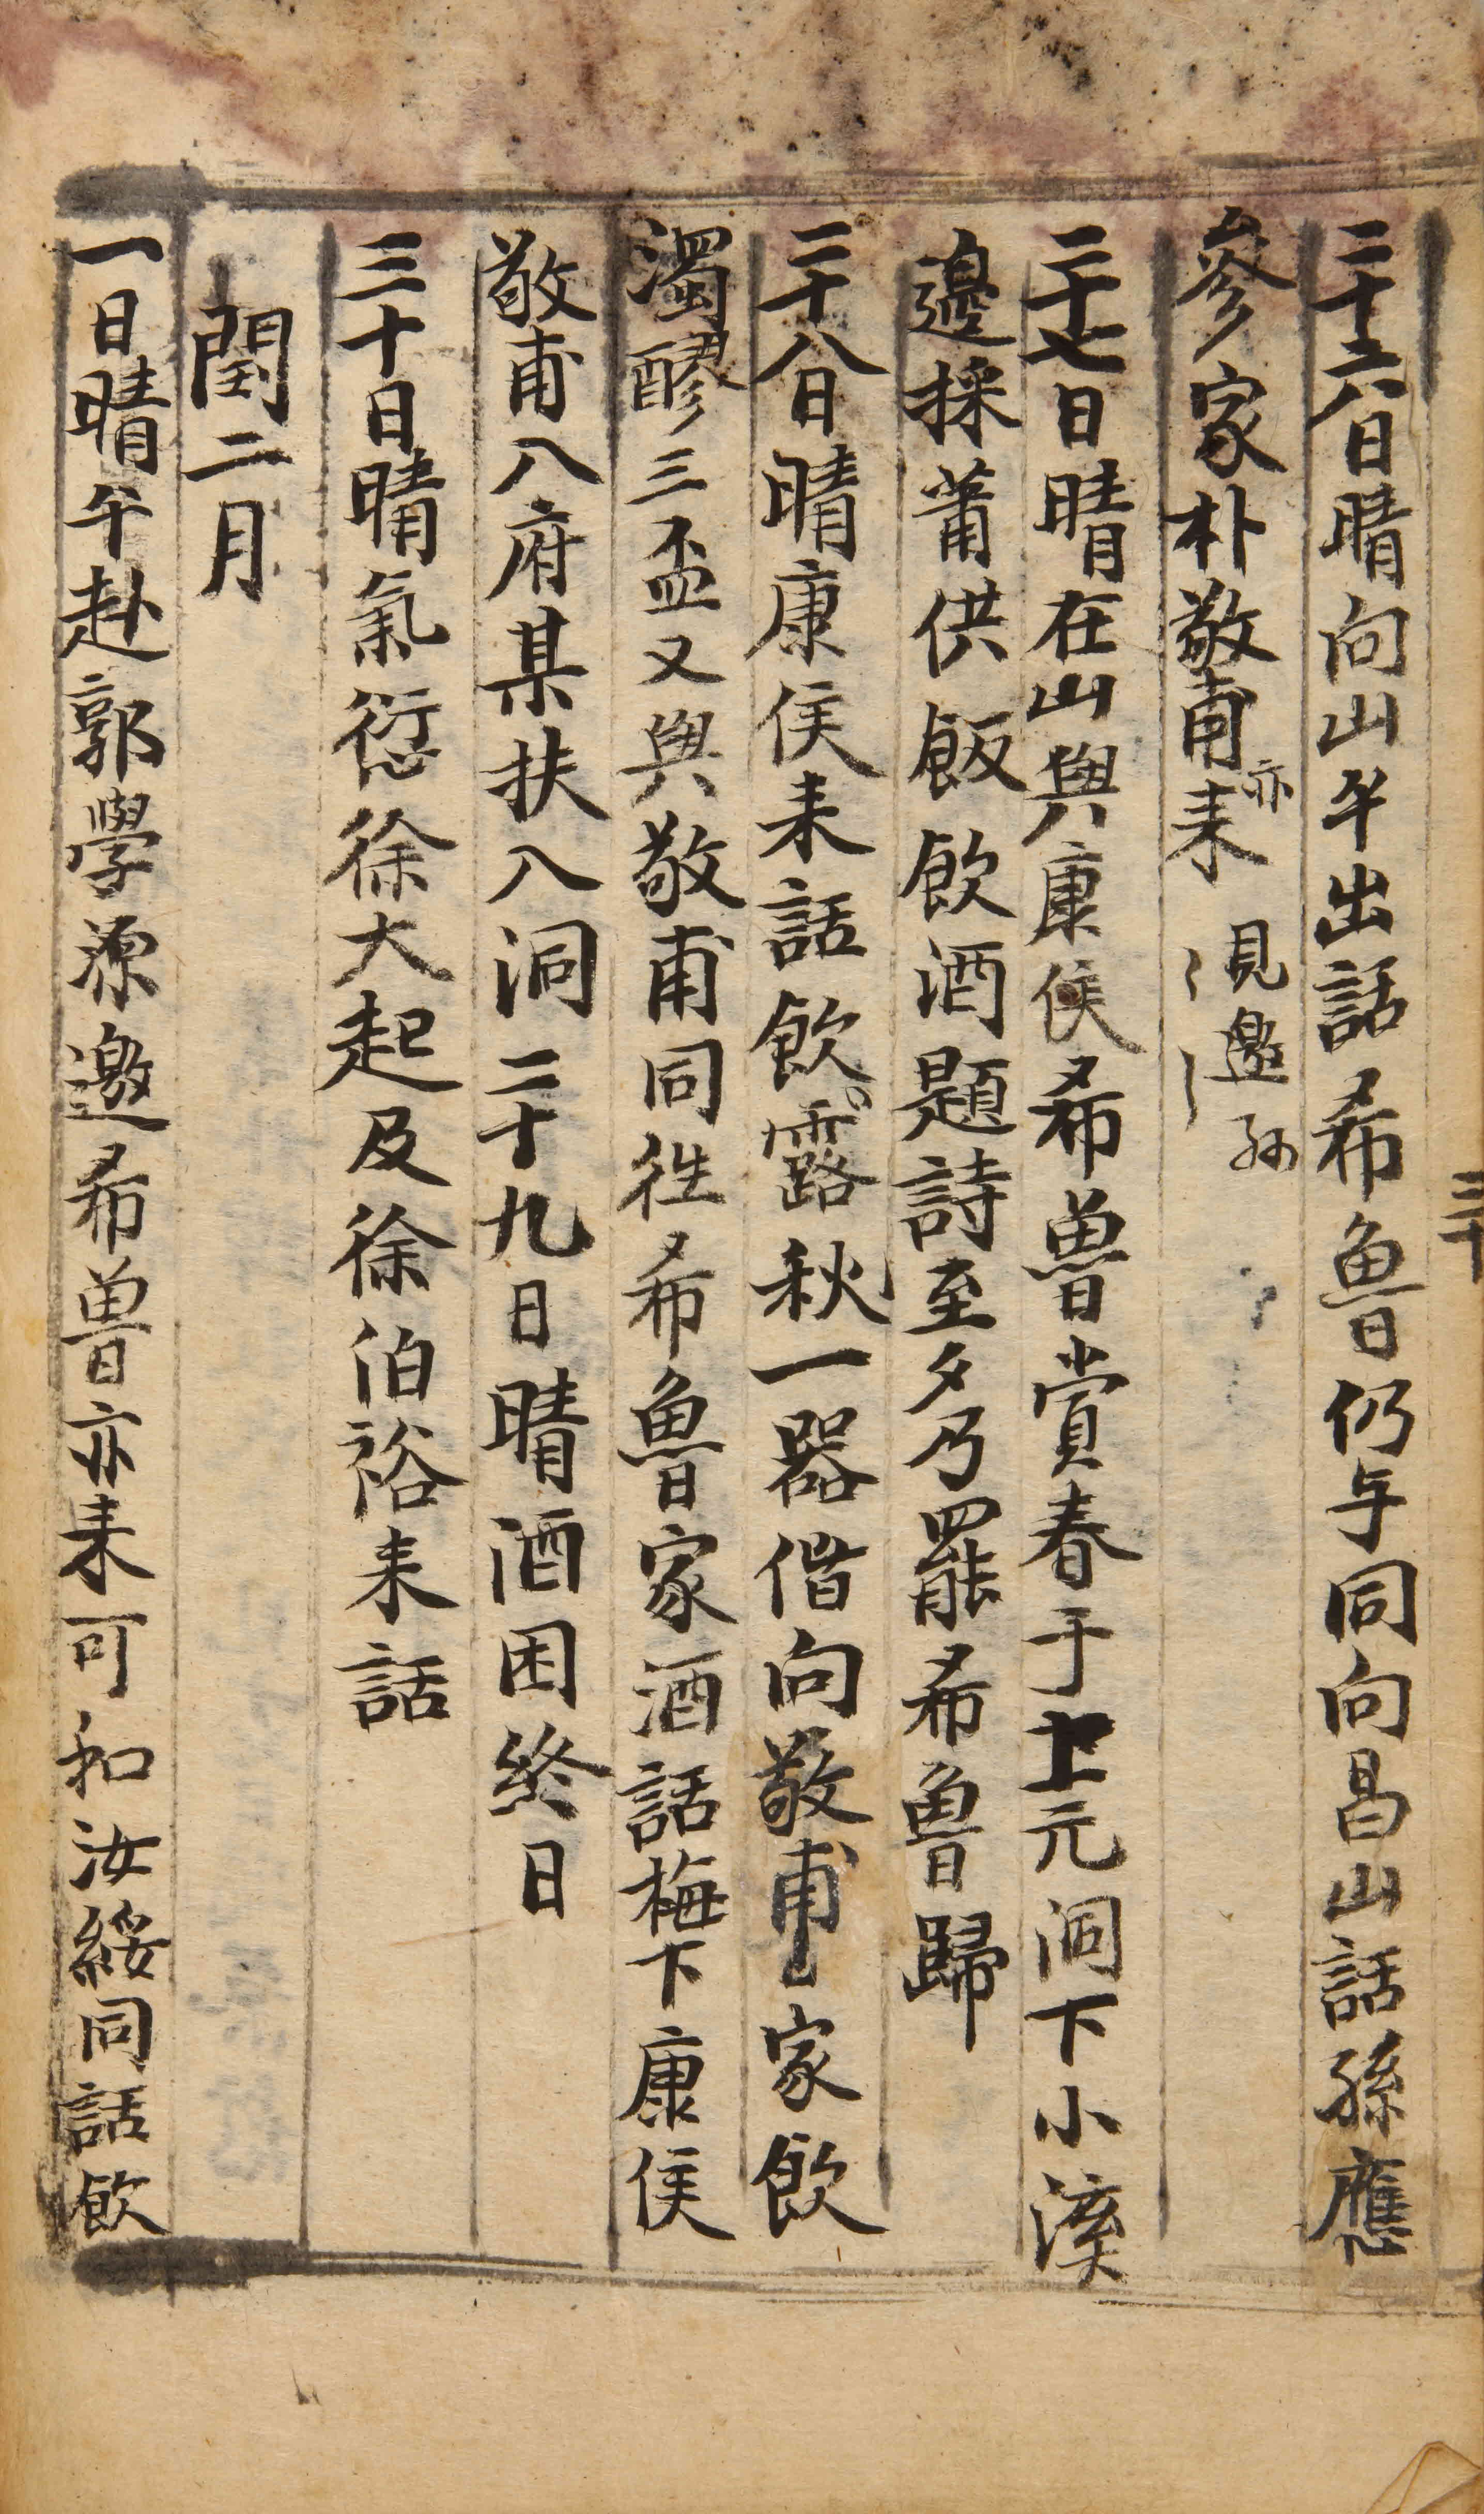 三十
二十六日晴向山午出話希魯仍与同向昌山話孫應
參家朴敬甫亦来
二十七日晴在山與康侯希魯賞春于上元洞下小溪
邊採莆供飯飲酒題詩至夕乃罷希魯歸
二十八日晴康侯来話飲露秋一器偕向敬甫家飲
濁醪三盃又與敬甫同徃希魯家酒話梅下康侯
敬甫入府某扶入洞 二十九日晴酒困終日
三十日晴氣愆徐大起及徐伯裕来話
閏二月
一日晴午赴郭學源邀希魯亦来可和汝綏同話飲